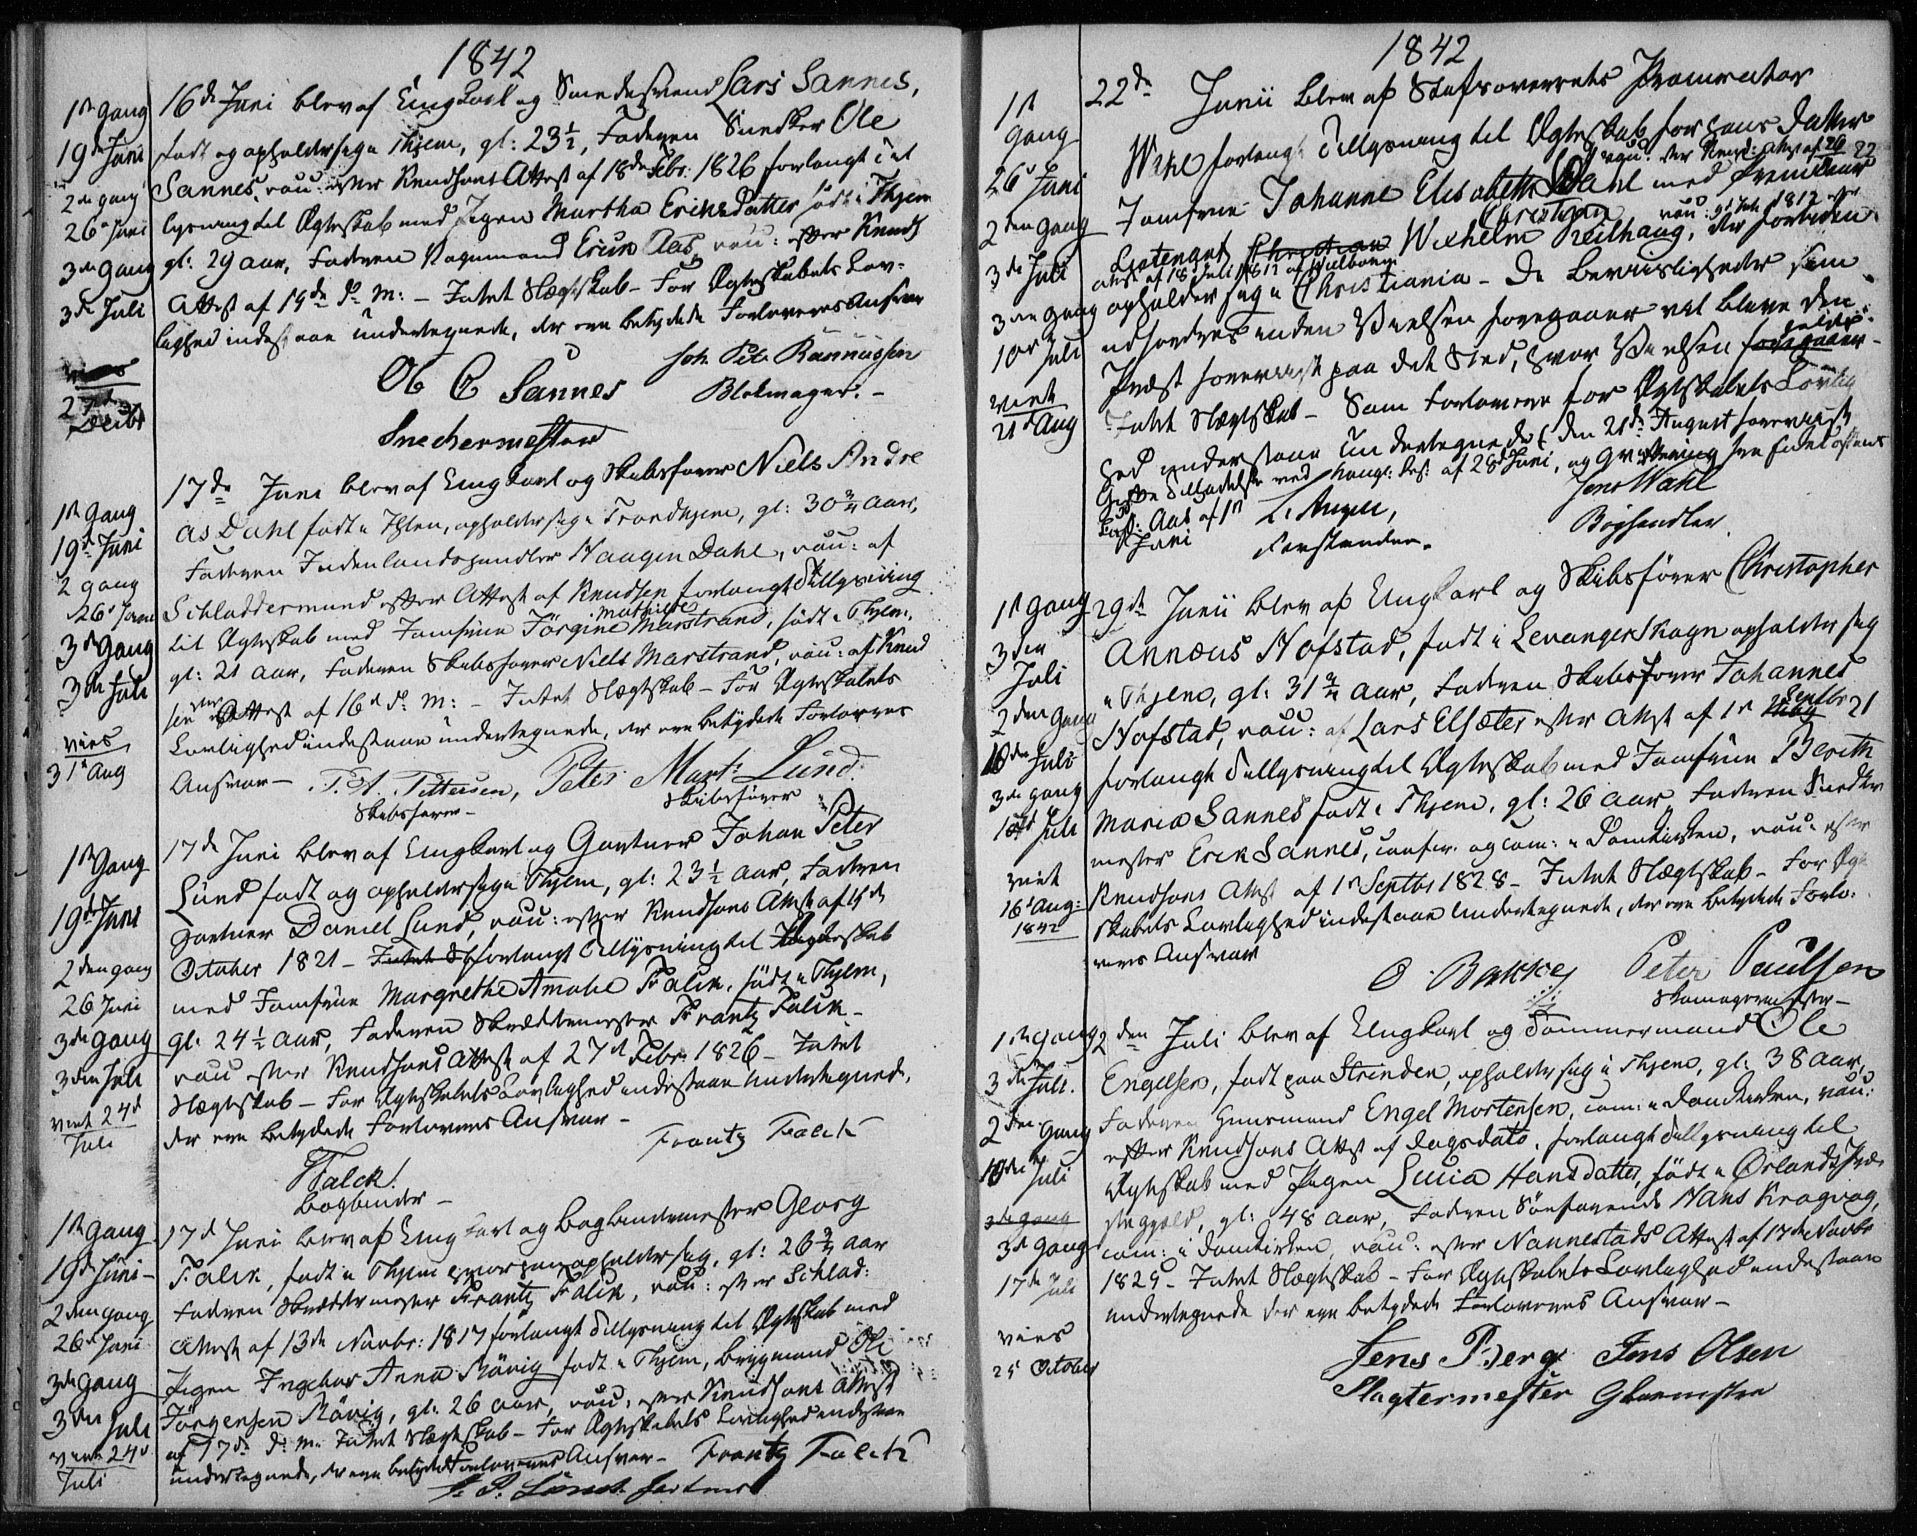 1842
1ste Gang
19de Juni
2den gang
26de Juni
3die Gang
3die Juli
vies
27de
Decbr
16de Juni blev af Ungkarl og Smedesvend Lars Sannes,
født og opholder sig i Thjem, gl: 23½, Faderen Snedker Ole
Sannes, vau: efter Knudsons Attest af 18de Febr. 1826 forlangt Til
lysning til Ægteskab med Pigen Martha Ericksdatter født i Thjem
gl: 29 aar, Faderen Vognmand Erick Aas, vau: efter Knuds
Attest af 19de d. M: - Intet Slægtskab - For Ægteskabets Lov-
lighed indestaae undertegnede, der ere betydede Forloveres Ansvar
Ol C Sannes
Joh. Petr. Rasmussen
Snedkermester
Blokmager. -
1ste Gang
19de Juni
2 gang
26de Juni
3die Gang
3die Juli
vies
31te Aug
17de Juni blev af Ungkarl og Skibsfører Niels Andre
as Dahl født i Thlem, opholder sig i Trondhjem, gl: 30¾ Aar,
Faderen Indenlandshandler Haagen Dahl, vau: af
Schloddermund efter Attest af Knudsen forlangt Tillysning
til Ægteskab med Jomfrue Jörgine Mathilde Marstrand, født i Thjem,
gl: 21 aar, Faderen Skibsfører Niels Marstrand, vau: af Knud
sen efter Attest af 16de d. M: - Intet Slægtskab - For Ægteskabets
Lovlighed indestaae undertegnede, der ere betydede Forloveres
Ansvar - T. A. Pettersen, Peter Mart: Lund
Skibsfører - Skibsfører
1ste Gang
19de Juni
2den gang
26 Juni
3die Gang
3die Juli
viet 24de
Juli
17de Juni blev af Ungkarl og Gartner Johan Peter
Lund født og opholder sig i Thjem, gl: 23½ aar, Faderen
Gartner Daniel Lund, vau: efter Knudsons Attest af 15de
October 1821 - Intet Sl forlangt Tillysning til Ægteskab
med Jomfrue Margrethe Amalie Falck, født i Thjem,
gl: 24½ aar, Faderen Skreddermester Frantz Falck -
vau efter Knudsons Attest af 27de Febr. 1826 - Intet
Slægtskab - For Ægteskabets Lovlighed indestaae Undertegnede,
der ere betydede Forloveres Ansvar -
Frantz Falck
Falck
Bogbinder -
1ste Gang
19de Juni -
2den gang
26de Juni
3die gang
3die Juli
viet 24de
Juli
17de Juni blev af Ungkarl og Bogbindermester Georg
Falck, født i Thjem hvor han opholder sig, gl: 26¾ aar
Faderen Skreddermester Frantz Falck, vau: efter Schlod:
Attest af 13de Novbr: 1817 forlangt Tillysning til Ægteskab med
Pigen Ingebor Anna Mövig født i Thjem, Brygmand Ole
Jörgensen Mövig, gl: 26 aar, vau: efter Knudsons Attest
af 17de d. M. Intet Slægtskab - For Ægteskabets Lovlighed indestaae
undertegnede, der ere betydede Forloveres Ansvar - Frantz Falck
J. P. Lund Gartner
1842
1ste
Gang
26de Juni
2den Gang
3die Juli
3die Gang
10de Juli
viet
21de Aug
22de Junii blev af Stiftsoverrets Procurator
Wahl forlangt Tillysning til Ægteskab for hans Datter
Jomfrue Johanne Elisabeth Wahl med Premier
Lieutenant Christian Christian Wilhelm Keilhaug, der forbiden
Attest af 18 Juli 1812 af
opholder sig i Christiania - De Beviisligheder som
udfordres inden Vielsen foregaaer vil blive den
Præst forevist paa det Sted, hvor Vielsen foregaaer holdes -
Intet Slægtskab - Som Forlovere for Ægteskabets Lovlig
hed indestaae Undertegnede (den 21de August forevist
L. Angell,
Forstander.
Jens Wahl
Boghandler
1ste Gang
3den
Juli
2den Gang
10de Juli
3die gang
17de Juli
viet
16de Aug:
1842
29de Junii blev af Ungkarl og Skibsfører Christopher
Annæus Hofstad, født i Levanger Skogn opholder sig
i Thjem, gl: 31¾ aar, Faderen Skibsfører Johannes
Hofstad, vau: af Lars Elsæter efter Attest af 1ste Septbr 21
forlangt Tillysning til Ægteskab med Jomfrue Berith
Maria Sannes født i Thjem, gl: 26 aar, Faderen Snedker
mester Erik Sannes, confir. og com: i Domkirken, vau: efter
Knudsons Attest af 1ste Septbr 1828 - Intet Slægtskab - For Ægte
skabets Lovlighed indestaae Undertegnede, der ere betydede Forlo:
veres Ansvar
O. Bakkes Peter Paulsen
Skomagermester -
1ste gang
3die Juli.
2den Gang
10de Juli
3die gang
3die Gang
17de Juli
vies
25 October
2den Juli blev af Ungkarl og Tømmermand Ole
Engelsen, født paa Strinden, opholder sig i Thjem, gl: 38 aar,
Faderen Huusmand Engel Mortensen, com: i Domkirken, vau:
efter Knudsons Attest af dagsdato, forlangt Tillysning til
Ægteskab med Pigen Lucia Hansdatter, født i Ørlandets Præ
stegjeld, gl: 48 aar, Faderen Söefarende Hans Kragvog,
com: i Domkirken, vau: efter Nannestads Attest af 17de Novbr
1829 - Intet Slægtskab - For Ægteskabets Lovlighed indestaae
undertegnede der ere betydede Forloveres Ansvar -
Jens Berg Jens Olsen
Slagtermester Glarmester